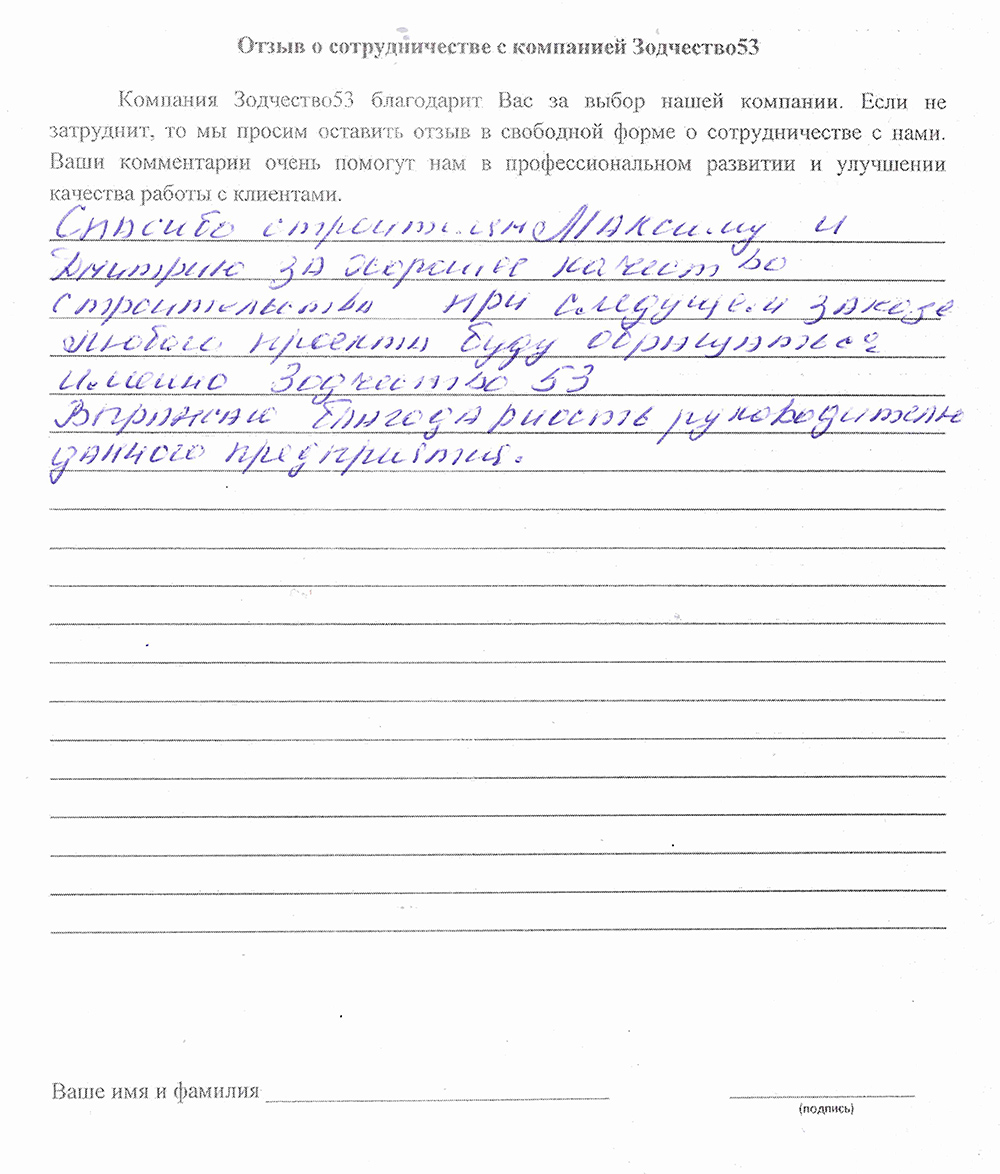 Отзыв о сотрудничестве с компанией Зодчество53
Компания Зодчество53 благодарит Вас за выбор нашей компании. Если не
затруднит, то мы просим оставить отзыв в свободной форме о сотрудничестве с нами.
Ваши комментарии очень помогут нам в профессиональном развитии и улучшении
качества работы с клиентами.
Спасибо строителям Максиму и
Дмитрию за хорошее качество
строительства при следущем заказе
любого проекта буду обращатся
именно Зодчество 53
Выражаю благодарность руководителю
данного предприятия.
Ваше имя и фамилия
(подпись)